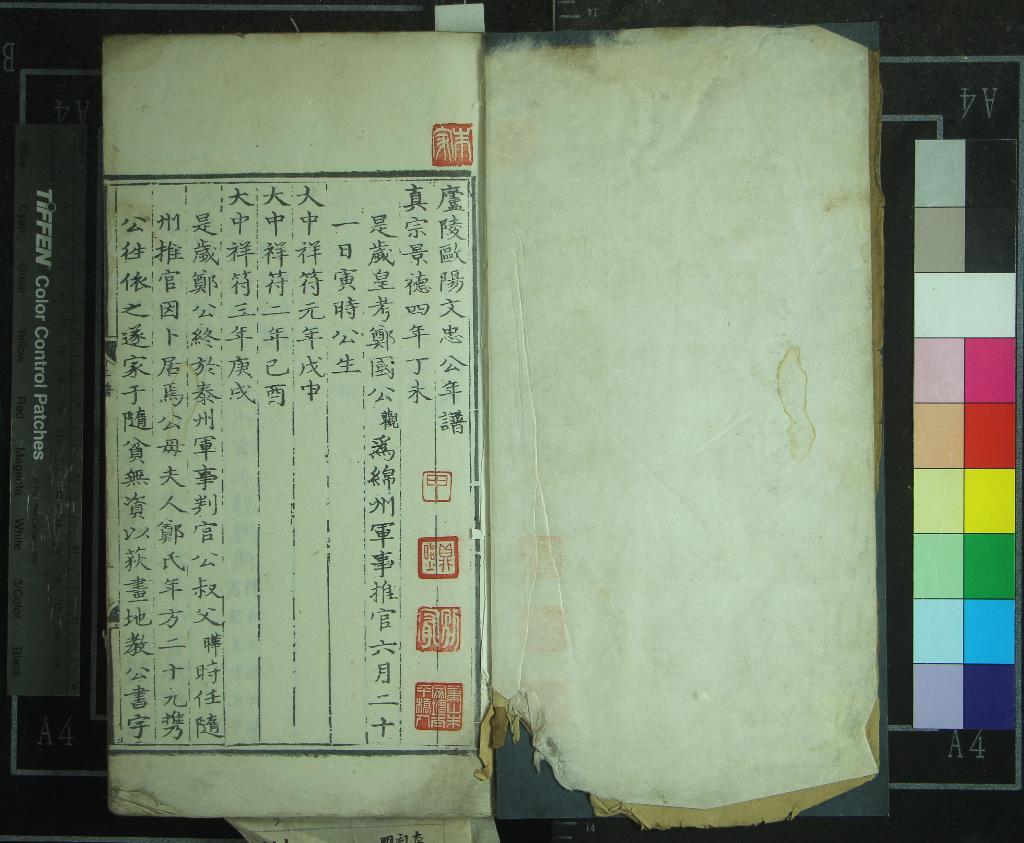 廬陵歐陽文忠公年譜
真宗景德四年丁未
是歲皇考鄭國公觀爲綿州軍事推官六月二十
一日寅時公生
大中祥符元年戊申
大中祥符二年己酉
大中祥符三年庚戌
是歲鄭公終於泰州軍事判官公叔父曄時任隨
州推官因卜居焉公母夫人鄭氏年方二十九携
公往依之遂家于隨貧無資以荻畫地教公書字
TIFFEN Color Control Patches
Blue
Cyan
Green
Yellow
Red
Magenta
White
3/Color
Black
A4
A4
A4
A4
B
14
14